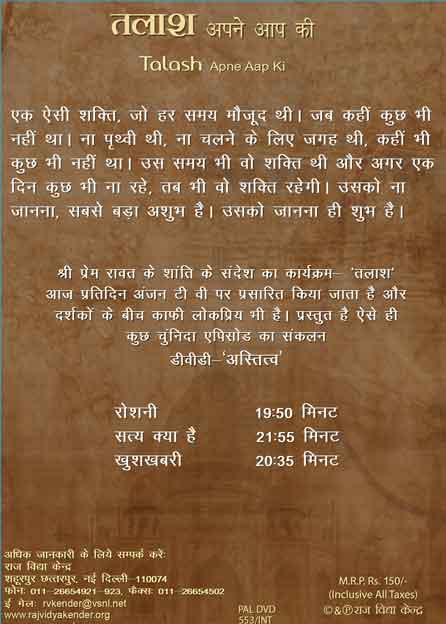 तलाश अपने आप की
Talash Apne Aap Ki
एक ऐसी शक्ति, जो हर समय मौजूद थी। जब कहीं कुछ भी
नहीं था। ना पृथ्वी थी, ना चलने के लिए जगह थी, कहीं भी
कुछ भी नहीं था। उस समय भी वो शक्ति थी और अगर एक
दिन कुछ भी ना रहे, तब भी वो शक्ति रहेगी। उसको ना
जानना, सबसे बड़ा अशुभ है। उसको जानना ही शुभ है।
श्री प्रेम रावत के शांति के संदेश का कार्यक्रम– 'तलाश'
आज प्रतिदिन अंजन टी वी पर प्रसारित किया जाता है और
दर्शकों के बीच काफी लोकप्रिय भी है। प्रस्तुत है ऐसे ही
कुछ चुंनिदा एपिसोड का संकलन
डीवीडी–'अस्तित्व'
रोशनी 19:50 मिनट
सत्य क्या है 21:55 मिनट
खुशखबरी 20:35 मिनट
अधिक जानकारी के लिये सम्पर्क करें:
राज विद्या केन्द्र
शहूरपुर छत्तरपुर, नई दिल्ली–110074
फोन: 011-26654921-923, फैक्स: 011-26654502
ई मेल: rvkender@vsnl.net
www.rajvidyakender.org
PAL DVD
553/INT
M.R.P. Rs. 150/-
(Inclusive All Taxes)
©&℗राज विद्या केन्द्र